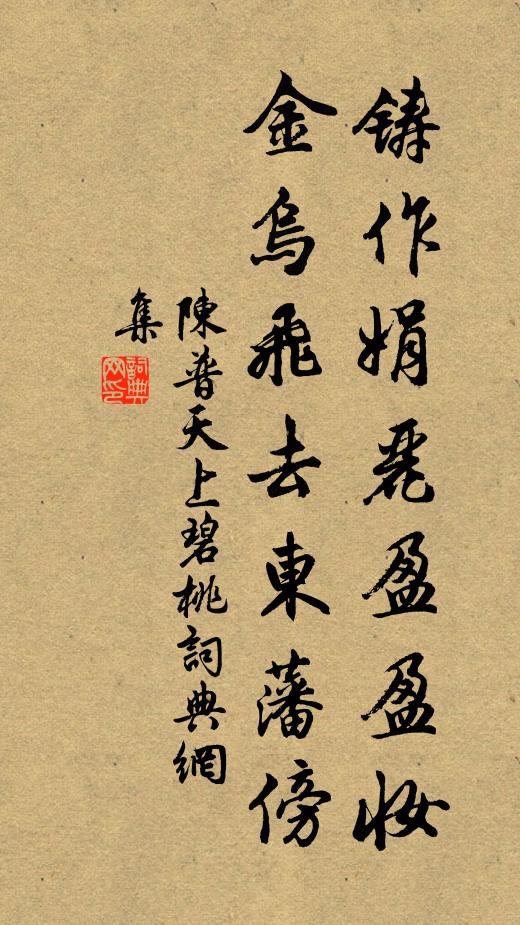 铸作娟麗盈盈妝
金烏飛去東藩傍
陳普天上碧桃詞典網
集
詞典
网印